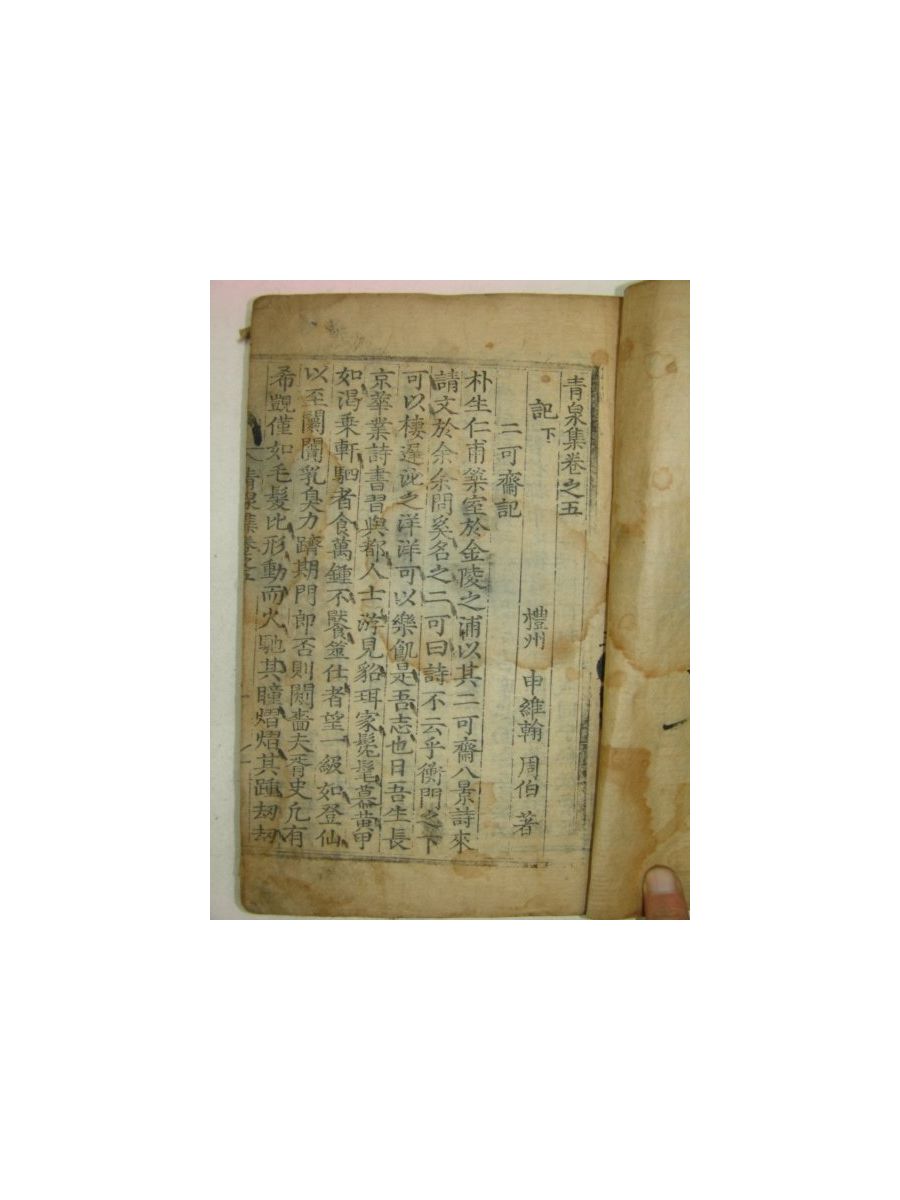 青泉集卷之五
記下
禮州 申維翰 周伯 著
二可齋記
朴生仁甫築室於金陵之浦以其二可齋八景詩來
請文於余余問奚名之二可曰詩不云乎衡門之下
可以棲遲泌之洋洋可以樂飢是吾志也曰吾生長
京華業詩書習與都人士游見貂珥家髡髦慕黃甲
如渴乘軒駟者食萬鍾不饜筮仕者望一級如登仙
以至闤闠乳臭力躋期門郎否則闕嗇夫胥史凢有
希覬僅如毛髮比形動而火馳其瞳熠熠其踵刼刼
青泉集卷之五